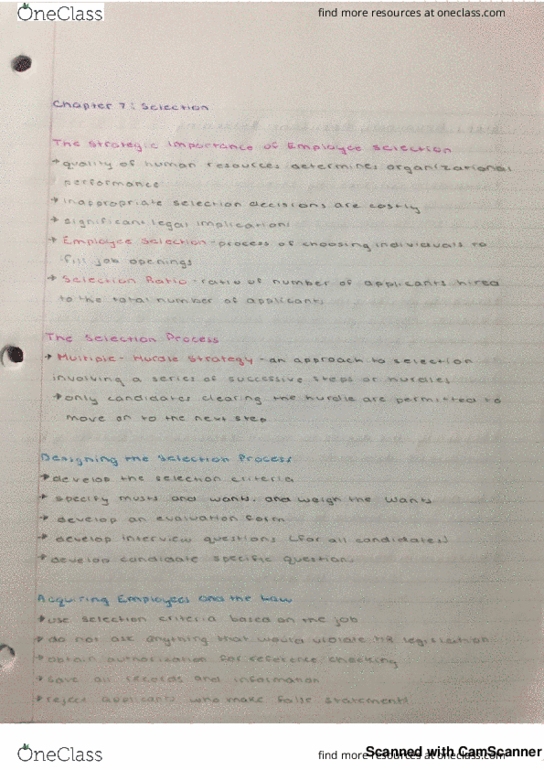 OneClass
find more resources at oneclass.com
Chapter 7: Selection
The Strategic Importance of Employee Selection
→ quality of human resources determines organizational
performance
→ inappropriate selection decisions are costly
→ significant legal implications
→ Employee Selection - process of choosing individuals to
fill job openings
→ Selection Ratio - ratio of number of applicants hired
to the total number of applicants
The Selection Process
→ Multiple-Hurdle Strategy - an approach to selection
involving a series of successive steps or hurdles
→ only candidates clearing the hurdle are permitted to
move on to the next step
Designing the Selection Process
→ develop the selection criteria
→ specify musts and wants, and weigh the wants
→ develop an evaluation form
→ develop interview questions (for all candidates)
→ develop candidate specific questions
Acquiring Employees and the Law
→ use selection criteria based on the job
→ do not ask anything that would violate HR legislation
→ obtain authorization for reference checking
→ save all records and information
→ reject applicants who make false statements
OneClass
find more resources at oneclass.com
Scanned with CamScanner